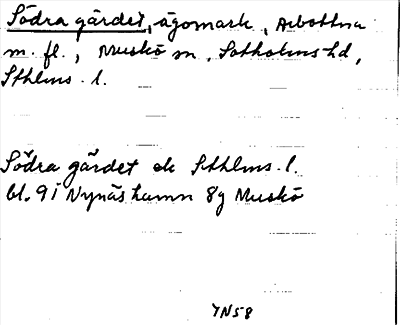 Södra gärdet, ägomark, Arbottna
m. fl., Muskö sn, Sotholms hd,
Sthlms l.
Södra gärdet ek Sthlms l.
bl. 9I Nynäshamn 8g Muskö
YN58